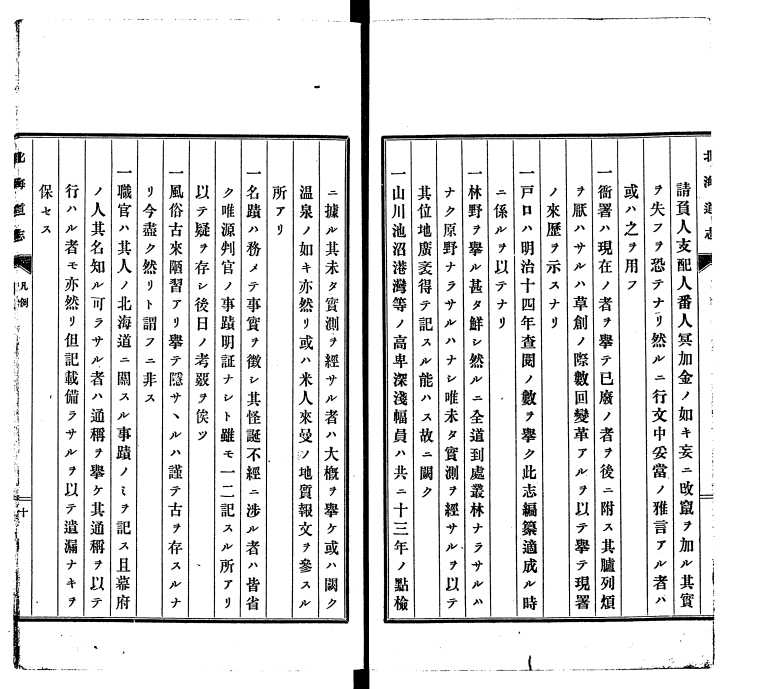 北海道志
請負人支配人番人冥加金ノ如キ妄ニ改竄ヲ加ル其實
ヲ失フヲ恐テナリ然ルニ行文中妥當ノ雅言アル者ハ
或ハ之ヲ用フ
一衙署ハ現在ノ者ヲ擧テ已廢ノ者ヲ後ニ附ス其臚列煩
ヲ厭ハサルハ草創ノ際數回變革アルヲ以テ擧テ現署
ノ來歷ヲ示スナリ
一戸口ハ明治十四年査閱ノ數ヲ擧ク此志編纂適成ル時
ニ係ルヲ以テナリ
一林野ヲ擧ル甚タ鮮シ然ルニ全道到處叢林ナラサルハ
ナク原野ナラサルハナシ唯未タ實測ヲ經サルヲ以テ
其位地廣袤得テ記スル能ハス故ニ闕ク
一山川池沼港灣等ノ高卑深淺幅員ハ共ニ十三年ノ點檢
ニ據ル其未タ實測ヲ經サル者ハ大槪ヲ擧ケ或ハ闕ク
溫泉ノ如キ亦然リ或ハ米人來曼ノ地質報文ヲ參スル
所アリ
一名蹟ハ務メテ事實ヲ徵シ其怪誕不經ニ涉ル者ハ皆省
ク唯源判官ノ事蹟明証ナシト雖モ一二記スル所アリ
以テ疑ヲ存シ後日ノ考覈ヲ俟ツ
一風俗古來陋習アリ擧テ隱サヽルハ謹テ古ヲ存スルナ
リ今盡ク然リト謂フニ非ス
一職官ハ其人ノ北海道ニ關スル事蹟ノミヲ記ス且幕府
ノ人其名知ル可ラサル者ハ通稱ヲ擧ケ其通稱ヲ以テ
行ハル者モ亦然リ但記載備ラサルヲ以テ遺漏ナキヲ
保セス
北海道志
凡例
十